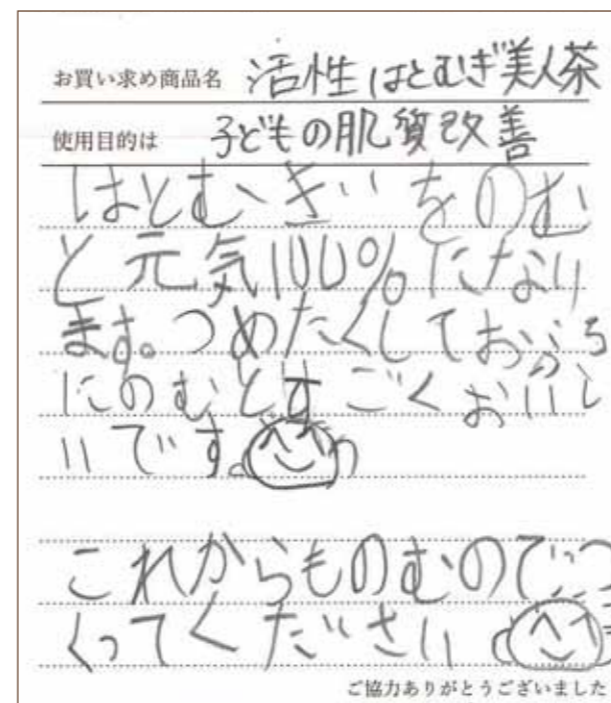 お買い求め商品名 活性はとむぎ美人茶
使用目的は 子どもの肌質改善
はとむぎいをのむ
と元気100%になり
ます。つめたくしておふろ
にのむとすごくおいし
いです。
これからものむのでつ
くってください
ご協力ありがとうございました